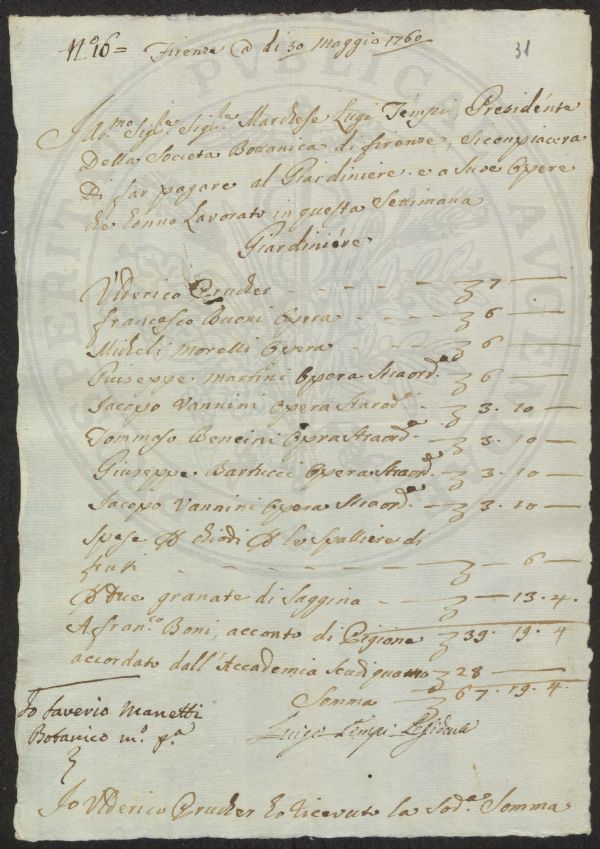 N.° 16 = Firenze @ di 30 Maggio 1760
31
Ill.mo Sig.re Sig.re Marchese Luigi Tempi, Presidente
Della Societa Bottanica di firenze, si conpiacera
Di far pagare al Giardiniere e a sue Opere
he hònno Lavorato in questa Settimana
Giardiniére
Vlderico Prucher - - - - - 7 —
francesco Buoni Opera - - - 6 —
Micheli Morelli Opera - - 6 —
Giuseppe Martini Opera Straord.a 6 —
Jacopo Vannini Opera Starod.a - 3 . 10 —
Tommaso Bencini Opra Straord.a - 3 . 10 —
Giuseppe Bartucci Opera Straord.a - 3 . 10 —
Jacopo Vannini Opera Straord.a - 3 . 10 —
Spese P chiodi P le spalliere di
- - - - - — 6 —
P due granate di Saggina - - — 13 . 4 .
A fran.co Boni, acconto di Pigione 39 . 19 . 4
accordato dall'Accademia Scudi quattro 28 —
Somma — 67 . 19 . 4
Io Saverio Manetti
Botanico m.o p.a
Luigi Tempi Presidente
Io Vlderico Prucher ho ricevuto la Sod.a Somma